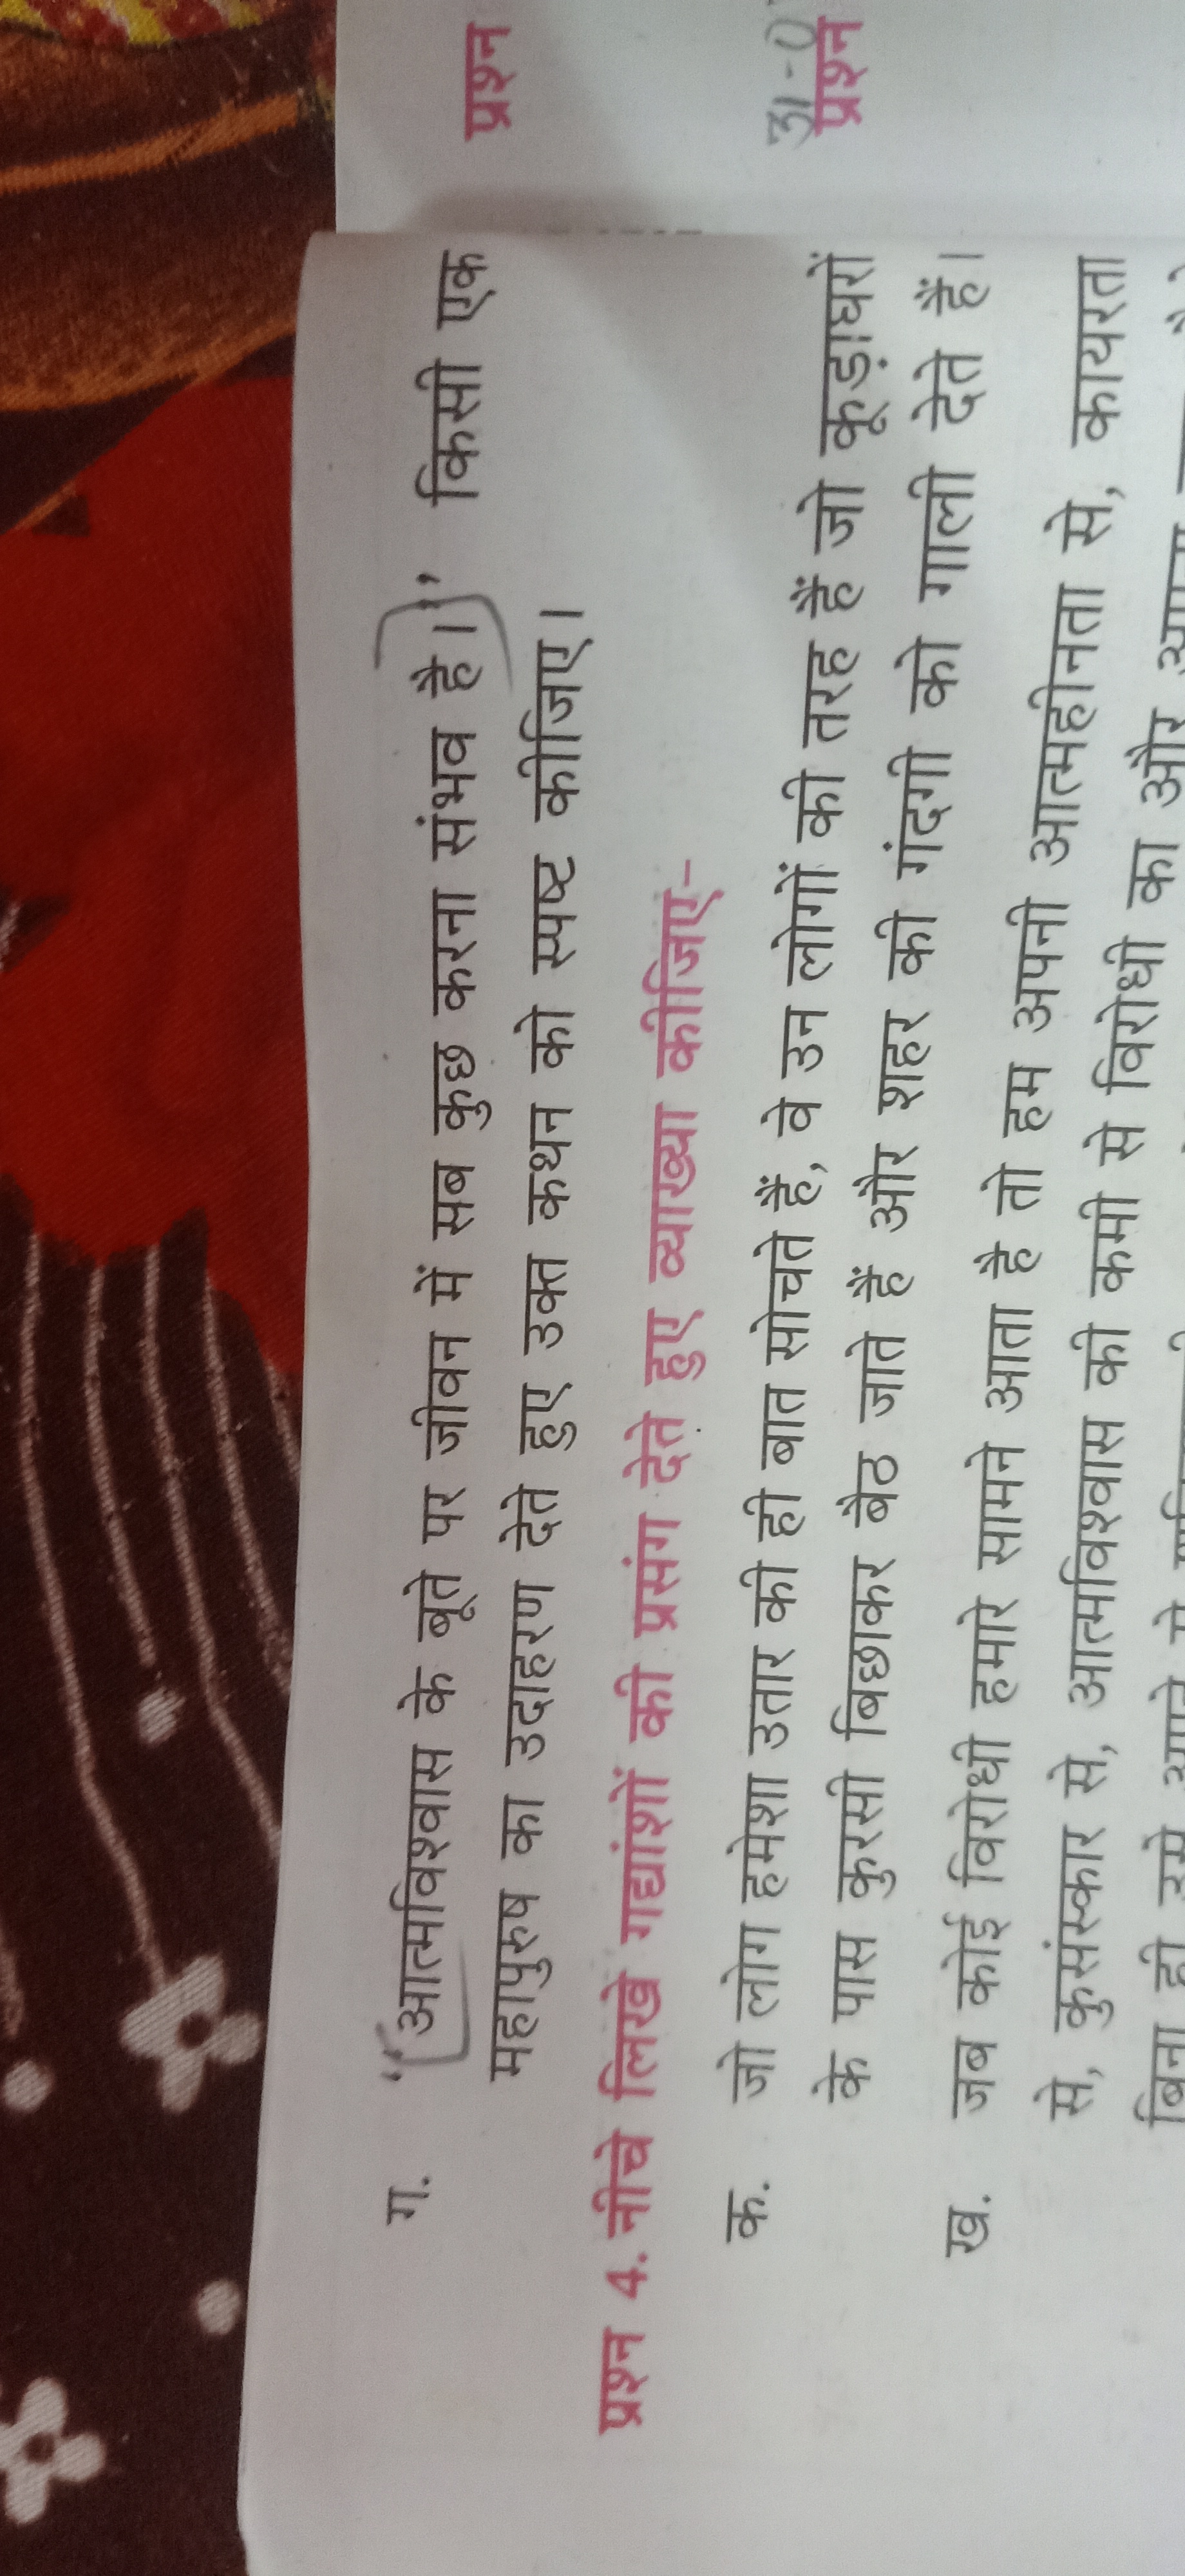 ग. “आत्मविश्वास के बूते पर जीवन में सब कुछ करना संभव है।” किसी एक
महापुरुष का उदाहरण देते हुए उक्त कथन को स्पष्ट कीजिए।
प्रश्न 4. नीचे लिखे गद्यांशों की प्रसंग देते हुए व्याख्या कीजिए-
क. जो लोग हमेशा उतार की ही बात सोचते हैं, वे उन लोगों की तरह हैं जो कूड़ाघरों
के पास कुरसी बिछाकर बैठ जाते हैं और शहर की गंदगी को गाली देते हैं।
ख. जब कोई विरोधी हमारे सामने आता है तो हम अपनी आत्महीनता से, कायरता
से, कुसंस्कार से, आत्मविश्वास की कमी से विरोधी का और
बिना ही उसे
प्रश्न
प्रश्न